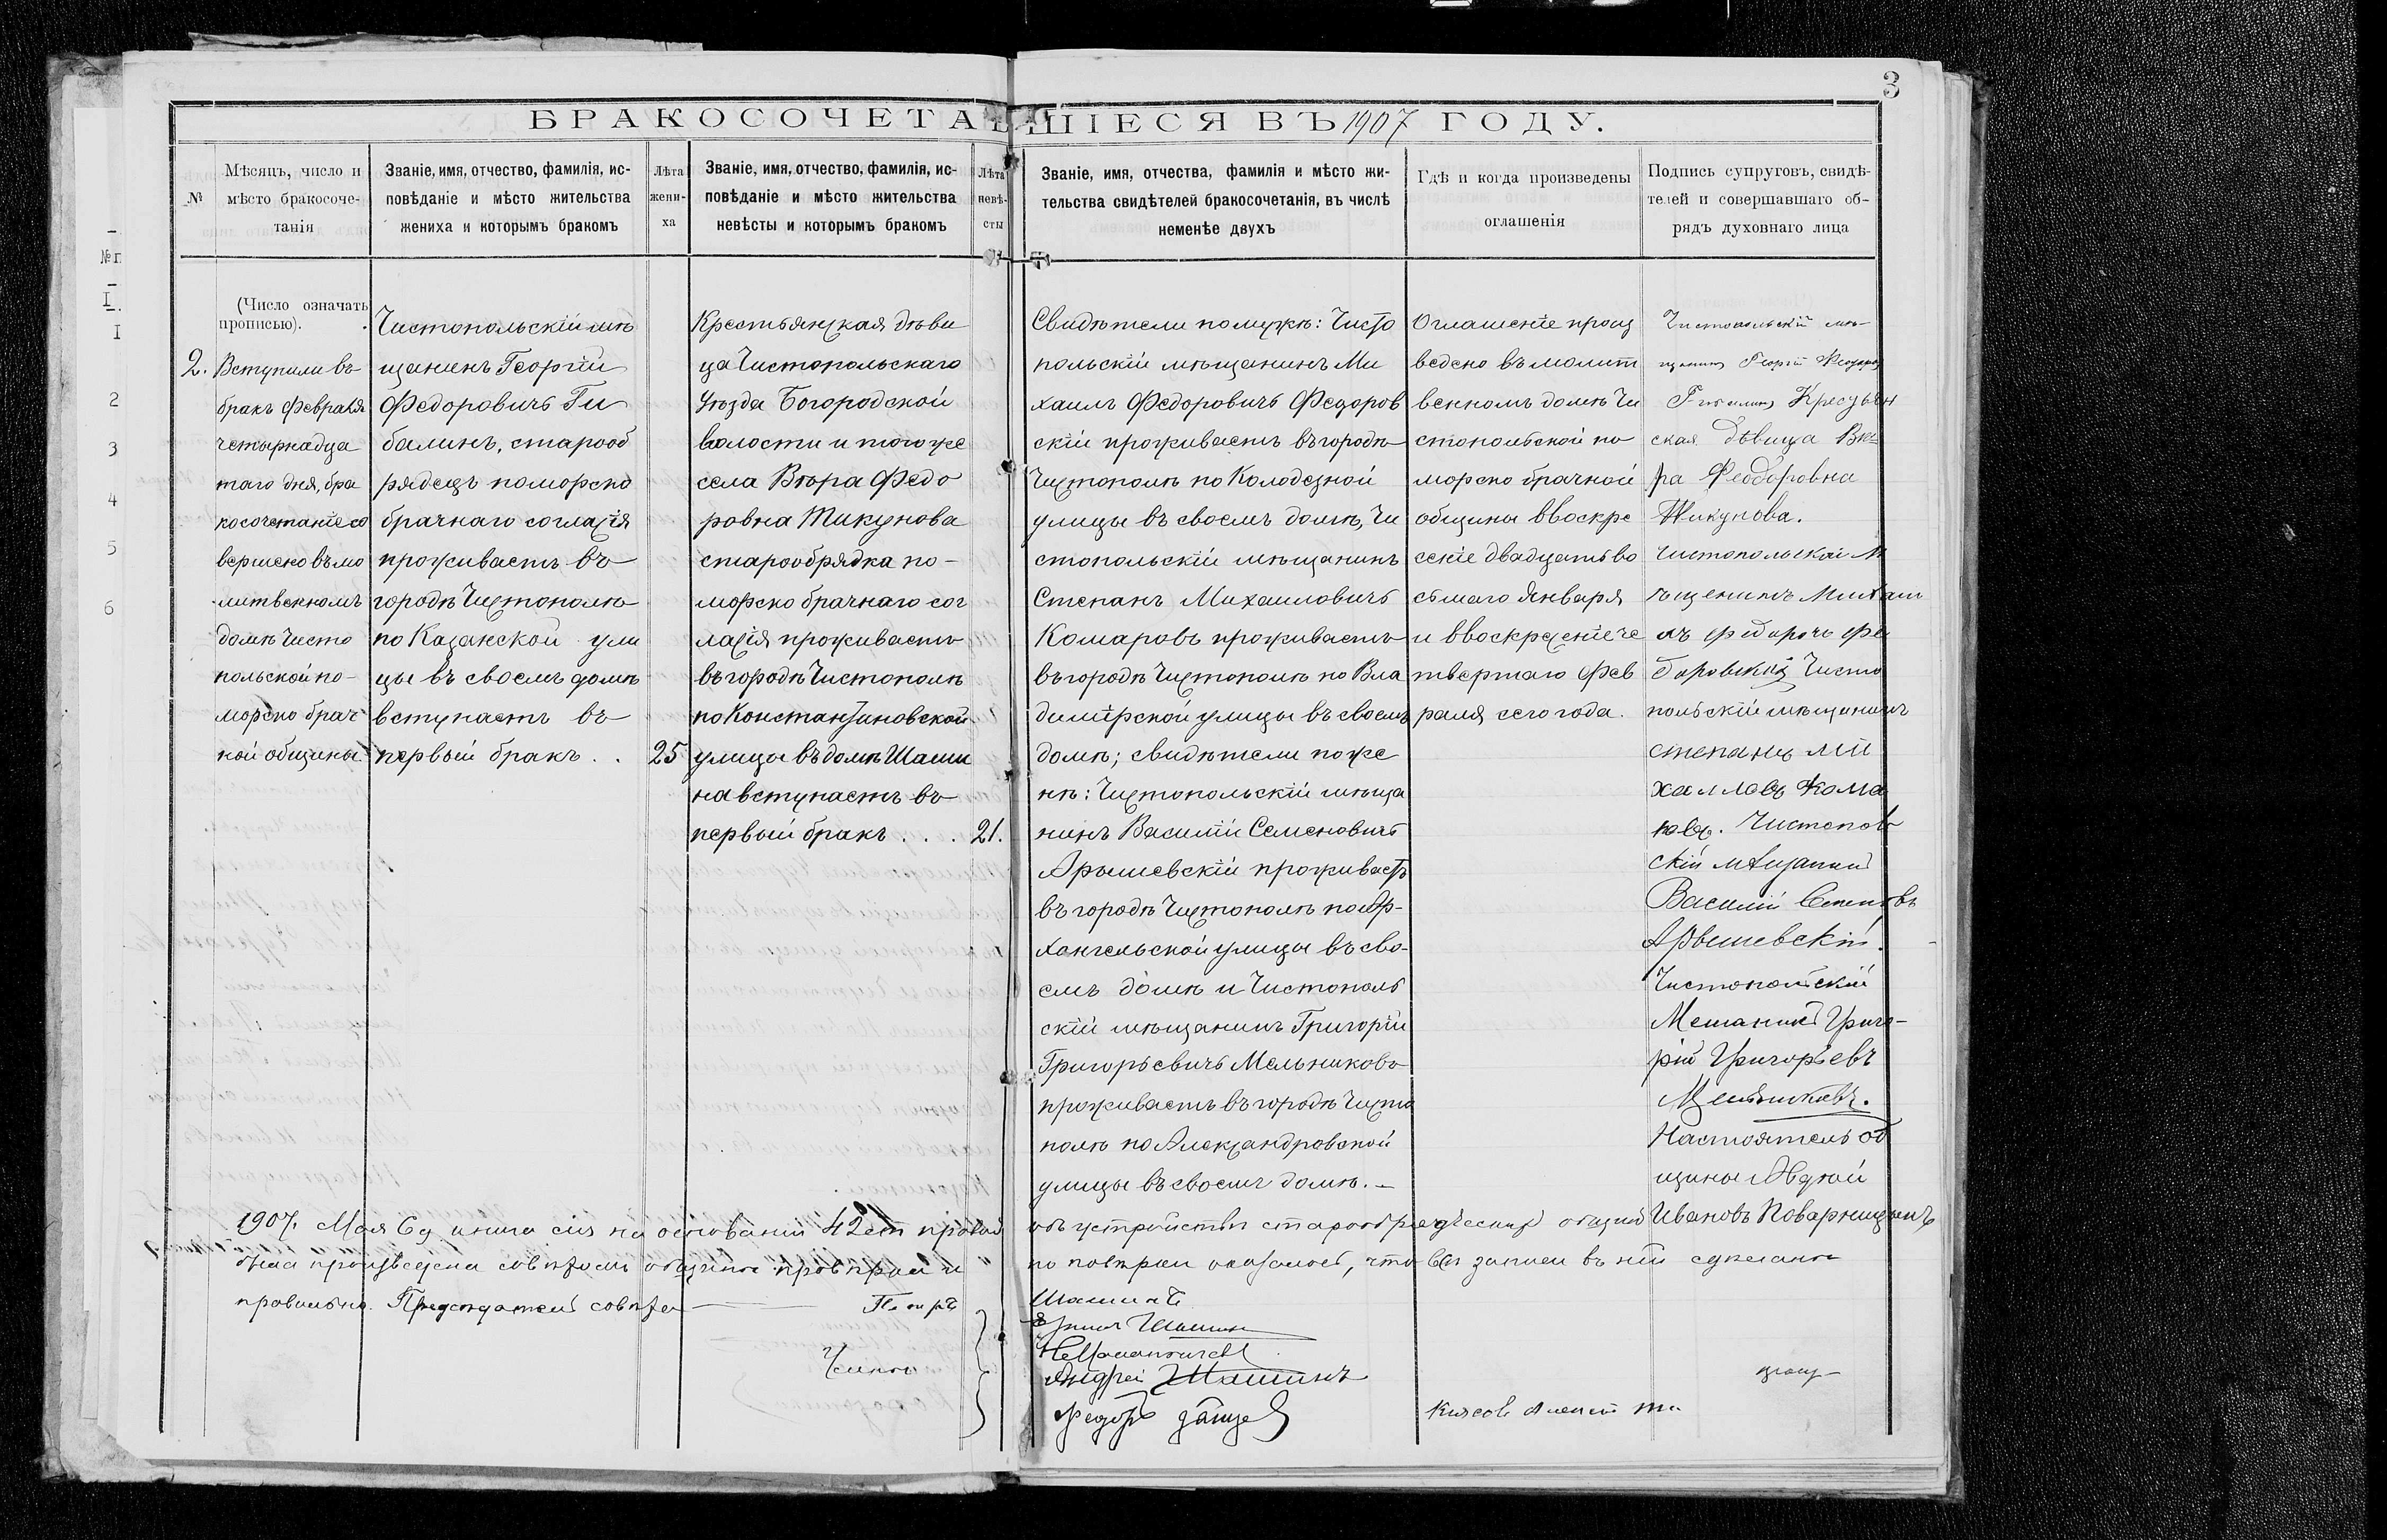 3
БРАКОСОЧЕТАВШІЕСЯ ВЪ 1907 ГОДУ.
№
Мѣсяцъ, число и
мѣсто бракосоче-
танія
Званіе, имя, отчество, фамилія, ис-
повѣданіе и мѣсто жительства
жениха и которымъ бракомъ
Лѣта
жени-
ха
Званіе, имя, отчество, фамилія, ис-
повѣданіе и мѣсто жительства
невѣсты и которымъ бракомъ
Лѣта
невѣ-
сты
Званіе, имя, отчества, фамилія и мѣсто жи-
тельства свидѣтелей бракосочетанія, въ числѣ
неменѣе двухъ
Гдѣ и когда произведены
оглашенія
Подпись супруговъ, свидѣ-
телей и совершавшаго об-
рядъ духовнаго лица
№п
I.
1
2
3
4
5
6
(Число означать
прописью).
2. Вступили въ
бракъ Февраля
четырнадца
таго дня, бра
косочетаніе со
вершено въ мо
литвенномъ
домѣ Чисто
польской по-
морско брач
ной общины.
Чистопольскій мѣ
щанинъ Георгій
Федоровичъ Ги
балинъ, старооб
рядецъ поморско
брачнаго согласія
проживаетъ въ
городѣ Чистополѣ
по Казанской ули
цы въ своемъ домѣ
вступаетъ въ
первый бракъ . .
25
Крестьянская дѣви
ца Чистопольскаго
Уѣзда Богородской
волости и того же
села Вѣра Федо
ровна Тикунова
старообрядка по-
морско брачнаго сог
ласія проживаетъ
въ городѣ Чистополѣ
по Константиновской
улицы въ домѣ Шаши
на вступаетъ въ
первый бракъ . . .
21.
Свидѣтели по мужѣ: Чисто
польскій мѣщанинъ Ми
хаилъ Федоровичъ Федоров
скій проживаетъ въ городѣ
Чистополѣ по Колодезной
улицы въ своемъ домѣ, Чи
стопольскій мѣщанинъ
Степанъ Михаиловичъ
Комаровъ проживаетъ
въ городѣ Чистополѣ по Вла
димірской улицы въ своемъ
домѣ; свидѣтели по же
нѣ: Чистопольскій мѣща
нинъ Василій Семеновичъ
Арышевскій проживаетъ
въ городѣ Чистополѣ по Ар-
хангельской улицы въ сво-
емъ домѣ и Чистополь
скій мѣщанинъ Григорій
Григорьевичъ Мельниковъ
проживаетъ въ городѣ Чисто
полѣ по Александровской
улицы въ своемъ домѣ. –
Оглашеніе произ
ведено въ молит
венномъ домѣ Чи
стопольской по
морско брачной
общины ввоскре
сеніе двадцать во
сьмаго Января
и ввоскресеніе че
твертаго Фев
раля сего года.
Чистопольскій мѣ-
щанинъ Георгій Федоров
Гибалинъ Крестьян
ская дѣвица Вѣ
ра Феодоровна
Тикунова.
Чистопольскій м
ѣщенинъ Михаи
лъ Федоровъ Фе
доровскій Чисто
польскій мѣщининъ
степанъ Ми
хаиловъ Кома
ровъ. Чистопол
скій мѣщанин
Василій Семеновъ
Арышевскій.
Чистопольскій
Мешанинъ Григо-
рій Григорьевъ
Мельниковъ.
Настоятель об
щины Авдѣй
Ивановъ Поварницынъ
1907. Мая 6 д книга сія на основаніи 42 ст правил
объ устройствѣ старообрядческихъ общинъ
была произведена совѣтомъ общины провѣрка и
по повѣрки оказалось, что всѣ записи въ ней сделаны
правильно. Предсѣдатель совѣта — Петръ
Шашинъ
Члены
Шашинъ
Андрей Шашинъ
Федоръ Зайцев